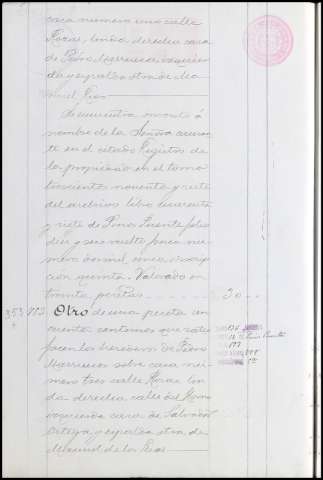 casa número uno calle
Rozas, linda derecha casa
de Pedro Berrueco, izquier
da y espalda otra de Ma
nuel Rios
Se encuentra inscrito á
nombre de la Señora causan
te en el citado Registro de
la propiedad en el tomo
trescientos noventa y siete
del archivo libro cuarenta
y siete de Puno Puente folio
diez y seis vuelto finca nú
mero dos mil, inscrip
cion quinta. Valorado en
treinta pesetas 30
353 173. Otro de una peseta cin
cuenta centimos que satis
facen los herederos de Pedro
Berrueco sobre casa nú
mero tres calle Rozas lin
da derecha calle del Horno
izquierda casa de Salvador
Ortega y espalda otra de
Manuel de los Rios